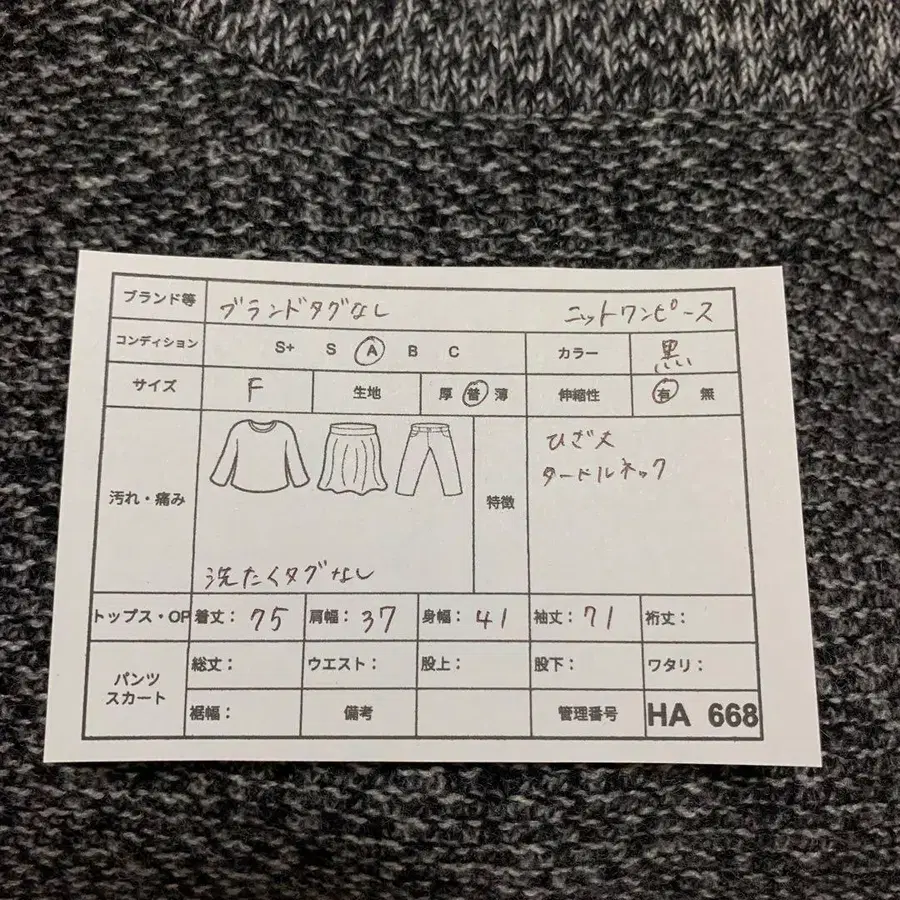 ブランド等 ブランドタグなし ニットワンピース
コンディション S+ S A B C カラー 黒い
サイズ F 生地 厚 普 薄 伸縮性 有 無
汚れ・痛み 洗たくタグなし 特徴 ひざ丈
タートルネック
トップス・OP 着丈: 75 肩幅: 37 身幅: 41 袖丈: 71 裄丈:
パンツ スカート 総丈: ウエスト: 股上: 股下: ワタリ:
裾幅: 備考 管理番号 HA 668